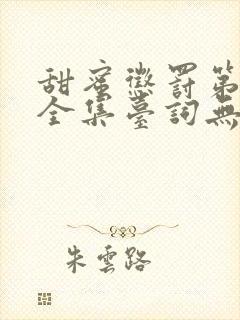 甜蜜懲罰第
全集臺詞無
朱雲路